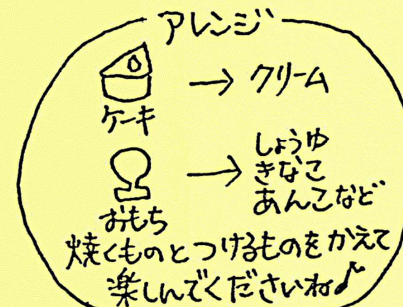 アレンジ
ケーキ → クリーム
おもち → しょうゆ
きなこ
あんこなど
焼くものとつけるものをかえて
楽しんでくださいね♪